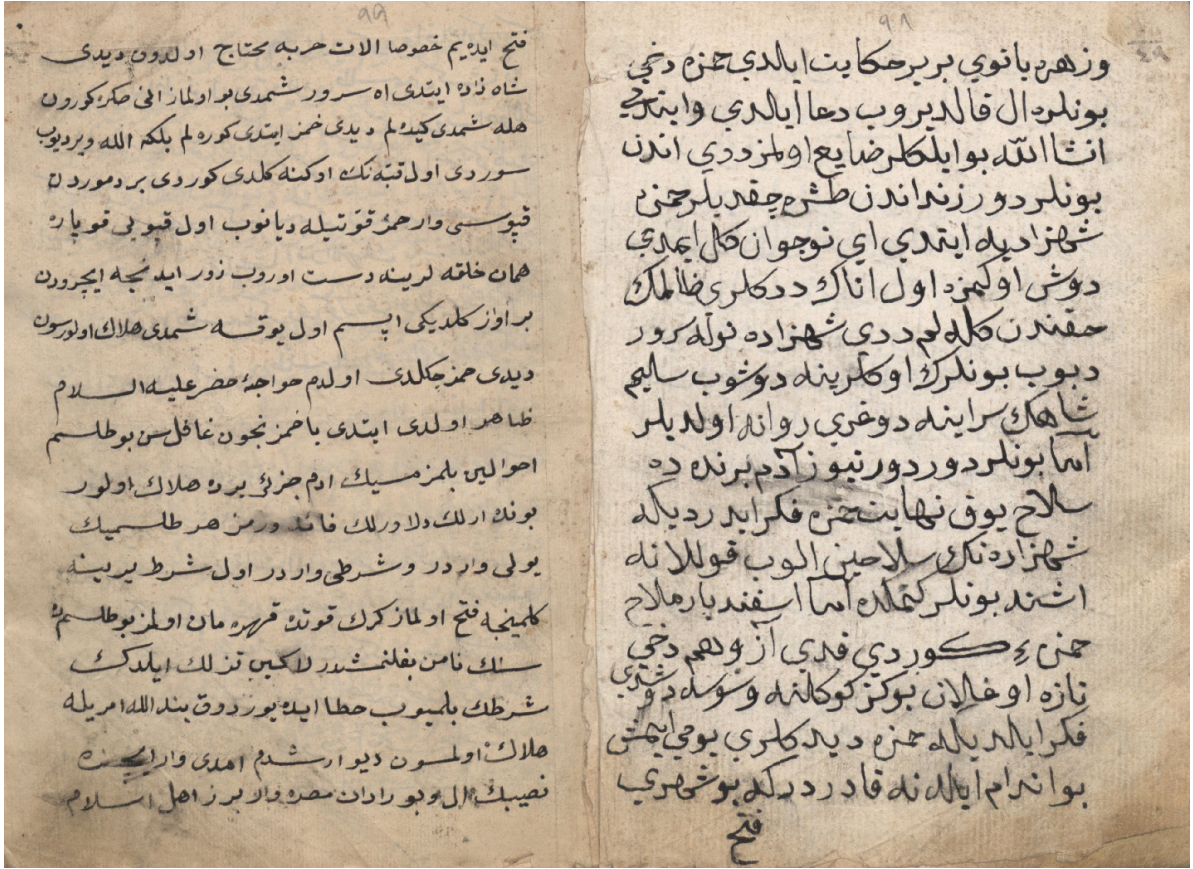 ٩٨
وزهره بانوي بربر حكايت ايالدي حمزه دخي
بونلره ال قالديروب دعا ايالدي وايتدي
انشاالله بو ايلكلر ضايع اولمز ددي اندن
بونلر دورزنداندن طشره چقديلر حمزه
شهزاديه ايتدي اي نوجوان كل ايمدي
دوش اوكمزه اول اناك ددكلري ظالمك
حقندن كله لم ددي شهزاده نوله سرور
ديوب بونلرك اوكلرينه دوشوب ساليم
شاهك سراينه دوغري روانه اولديلر
اما بونلر دورد يوز آدم برنده ده
سلاح يوق نهايت حمزه فكر ايدرديكه
شهزاده نك سلاحين الوب قوللانه
اشته بونلر كتمكده اما اسفنديار ملاح
حمزه ء كوردي قدي آز وهم دخي
تازه اوغالان بوكز كوكلنه وسوسه دوشدي
فكر ايالديكه حمزه ديدكلري بومي ايمش
بو اندام ايله نه قادردركه بو شهري
فتح
٩٩
فتح ايده يم خصوصا الات حربه محتاج اولدون ديدى
شاه زاده ايتدى اه سرور شمدى بو اولماز الى صكره كورون
هله شمدى كيده لم ديدى حمزه ايتدى كوره لم بلكه الله ويره ديوب
سوردى اول قبه نك اوكنه كلدى كوردى بر دموردن
قپوسى وار حمزه قوتيله ديانوب اول قپويى قوپاره
همان خلقه لرينه دست اوروب زور ايدنجه ايچرودن
بر اواز كلديكى اپسم اول يوقسه شمدى هلاك اولورسون
ديدى حمزه چكلدى اولدم خواجه حضر عليه السلام
ظاهر اولدى ايتدى يا حمزه نجون غافل سن بو طلسم
احوالين بلمزميسك ادم جزئى يرده هلاك اولور
بونده ارلك دلاورلك فائده ورمز هر طلسميك
يولى واردر وشرطى واردر اول شرط يرينه
كلمينجه فتح اولماز كرك قوتده قهرمان اولمز بو طلسم
سنك نامن بغلنمشدر لاكين تزلك ايلدك
شرطك بلميوب حطا ايده يوردوق بند الله امريله
هلاك اولمسون ديو ارشدم امدى وار
نصيبك ال وبورادان مصره وار برز اهل اسلام